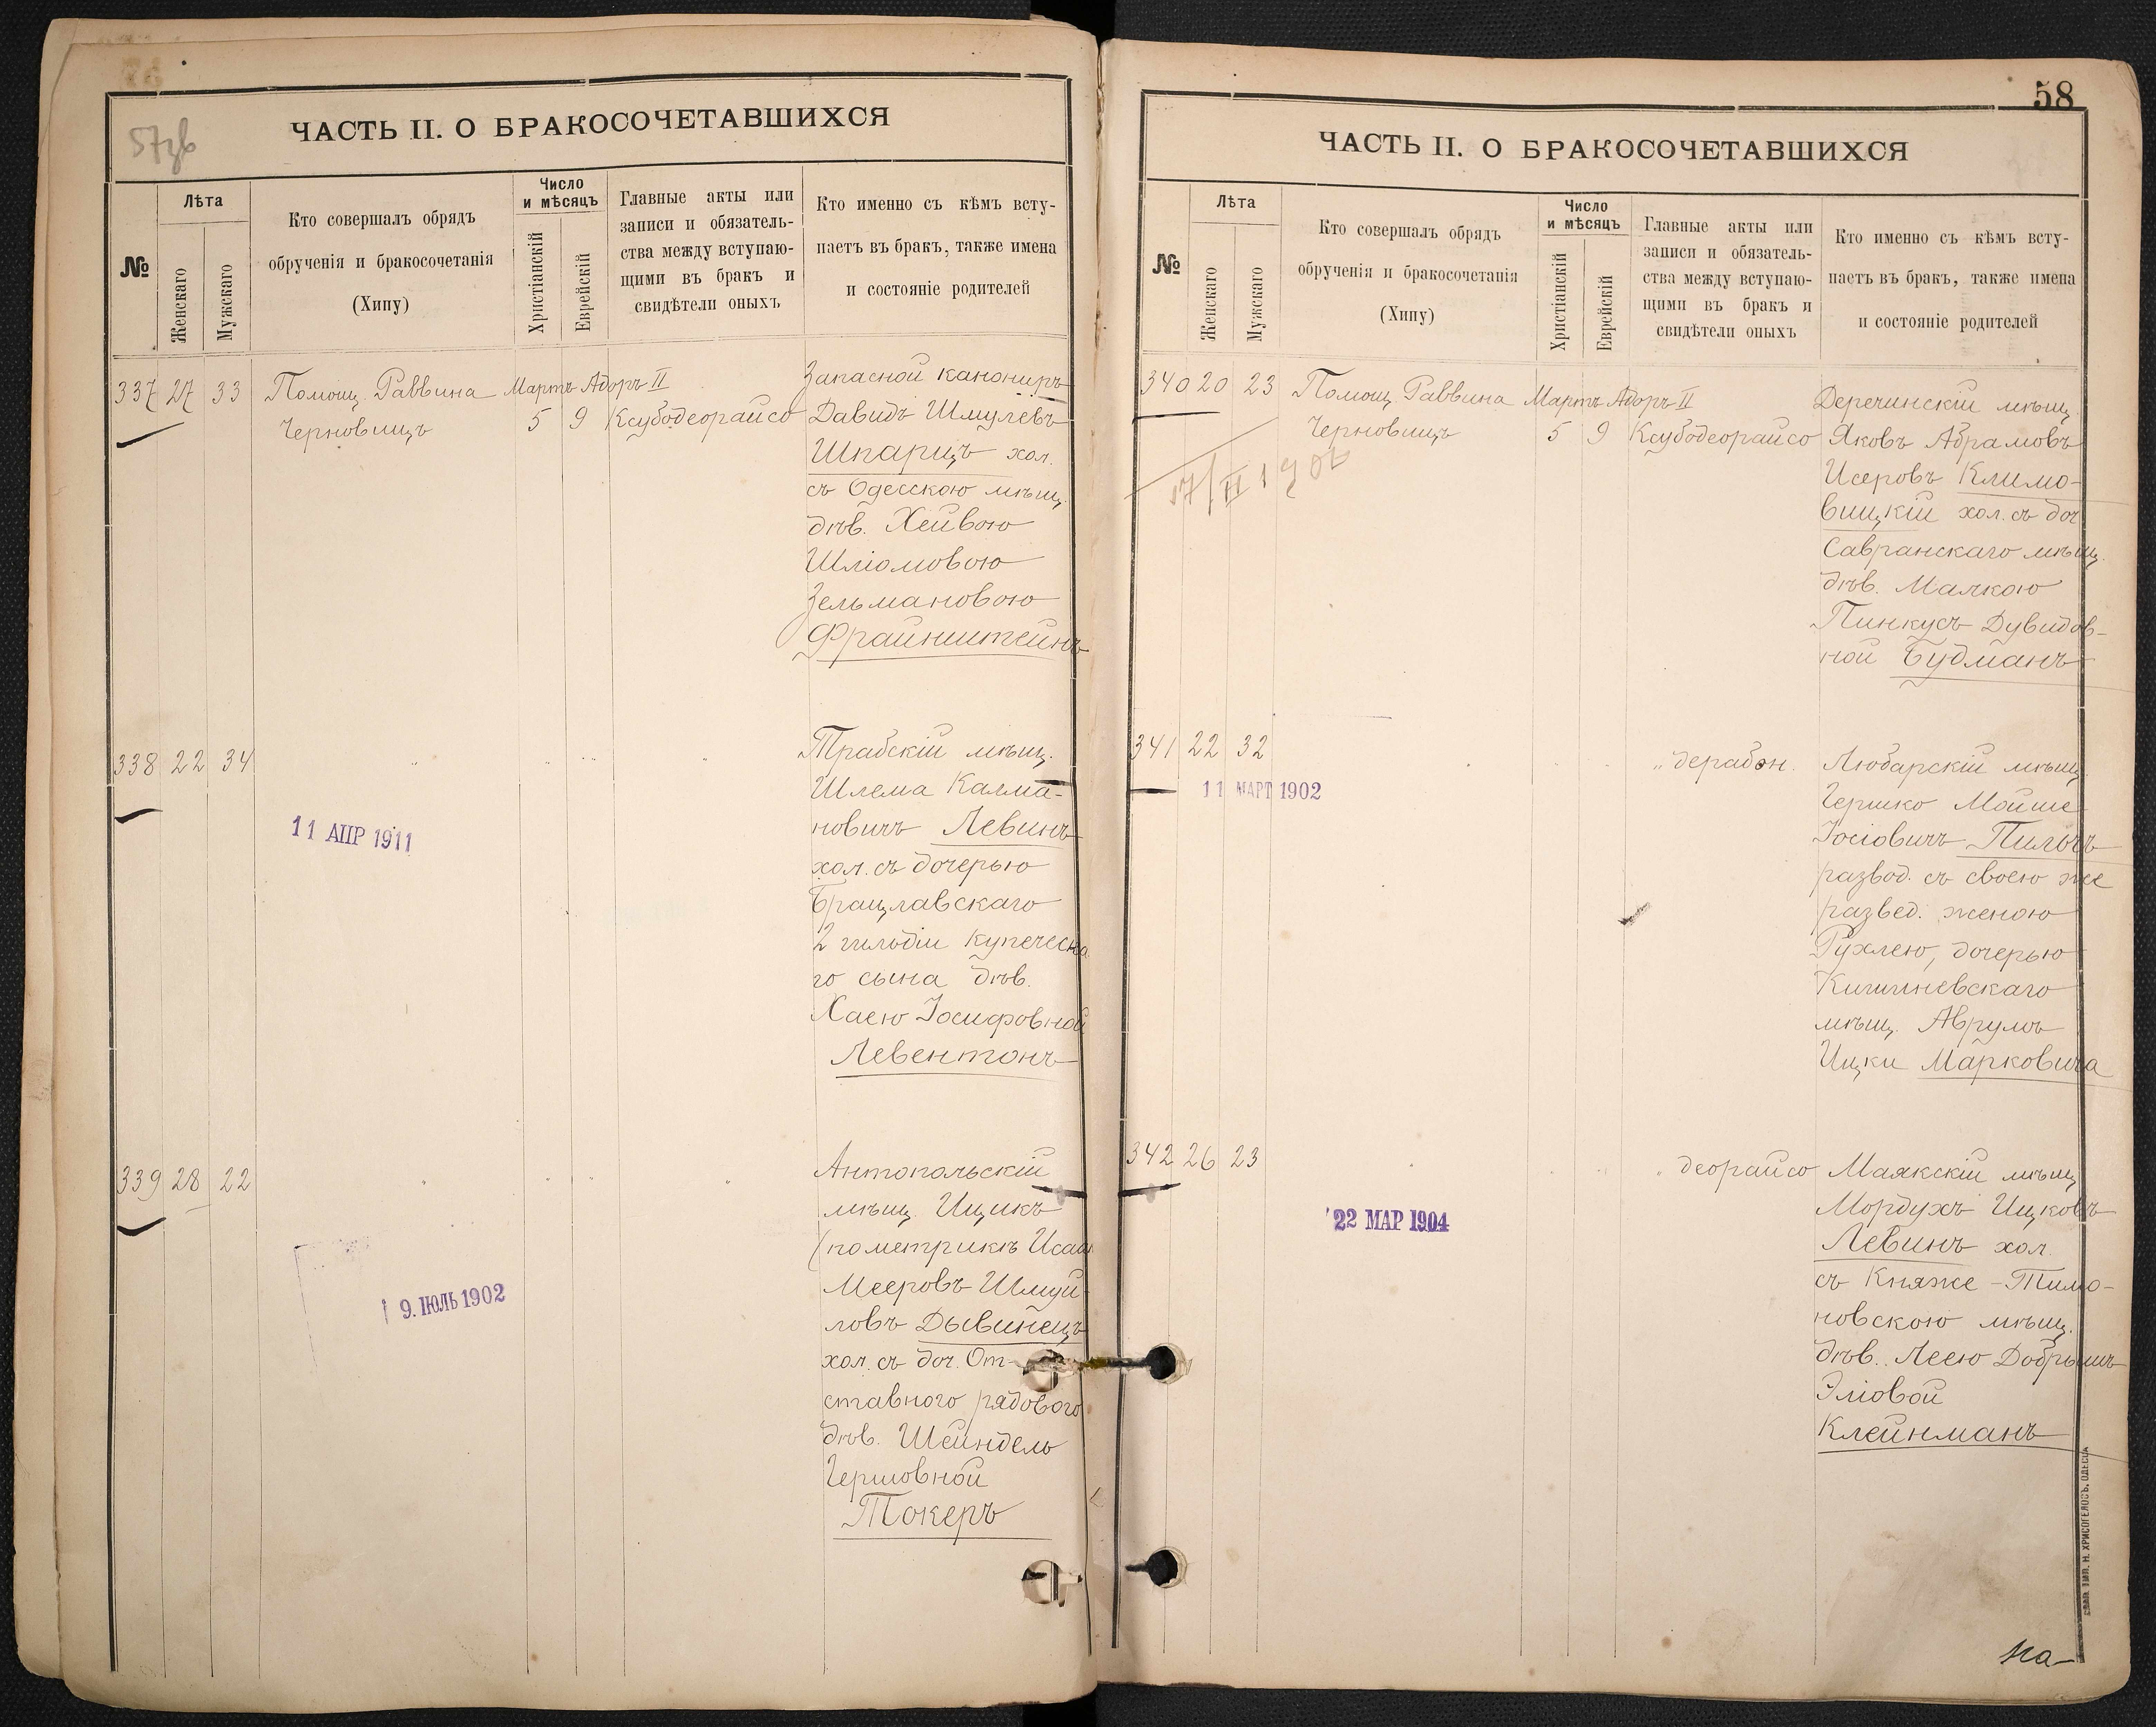 57зв
ЧАСТЬ II. О БРАКОСОЧЕТАВШИХСЯ
№
Лѣта
Женскаго
Мужскаго
Кто совершалъ обрядъ
обрученія и бракосочетанія
(Хипу)
Число
и мѣсяцъ
Христіанскій
Еврейскій
Главные акты или
записи и обязатель-
ства между вступаю-
щими въ бракъ и
свидѣтели оныхъ
Кто именно съ кѣмъ всту-
паетъ въ бракъ, также имена
и состояніе родителей
337 27 33 Помощ. Раввина Мартъ Адоръ II
Черновицъ 5 9 Ксубодеорайсо
Запасной канониръ
Давидъ Шмулевъ
Шпарцъ хол.
съ Одесскою мѣщ.
дѣв. Хейвою
Шліомовою
Зельмановою
Файнштейнъ
338 22 34 " " " "
11 АПР 1911
Трабскій мѣщ.
Шлема Калма-
новичъ Левинъ
хол. съ дочерью
Брацлавскаго
2 гильдіи купеческа
го сына дѣв.
Хаею Іосифовной
Левентонъ
339 28 22 " " " "
9. ІЮЛЬ 1902
Антопольскій
мѣщ. Ицикъ
(по метрикѣ Исаак
Мееровъ Шмуй-
ловъ Дывинецъ
хол. съ доч. От-
ставного рядового
дѣв. Шейндель
Гершовной
Токеръ
58
ЧАСТЬ II. О БРАКОСОЧЕТАВШИХСЯ
№
Лѣта
Женскаго
Мужскаго
Кто совершалъ обрядъ
обрученія и бракосочетанія
(Хипу)
Число
и мѣсяцъ
Христіанскій
Еврейскій
Главные акты или
записи и обязатель-
ства между вступаю-
щими въ бракъ и
свидѣтели оныхъ
Кто именно съ кѣмъ всту-
паетъ въ бракъ, также имена
и состояніе родителей
340 20 23 Помощ. Раввина Мартъ Адоръ II
Черновицъ 5 9 Ксубодеорайсо
17/II
Деречинскій мѣщ.
Яковъ Абрамовъ
Исеровъ Климо-
вицкій хол. съ доч
Савранскаго мѣщ.
дѣв. Малкою
Пинкусъ Дувидов-
ной Будманъ
341 22 32 " " " " дерабон.
11 МАРТ 1902
Любарскій мѣщ.
Гершко Мойше
Іосіовичъ Пильчъ
развод. съ своею же
развед. женою
Рухлею, дочерью
Кишиневскаго
мѣщ. Аврумъ
Ицки Марковича
342 26 23 " " " " деорайсо
22 МАР 1904
Маякскій мѣщ.
Мордухъ Ицковъ
Левинъ хол.
съ Княже-Тимо-
новскою мѣщ.
дѣв. Леею Добрышъ
Эліовой
Клейнманъ
ТИП. Н. ХРИСОГЕЛОСЪ, ОДЕССА
на